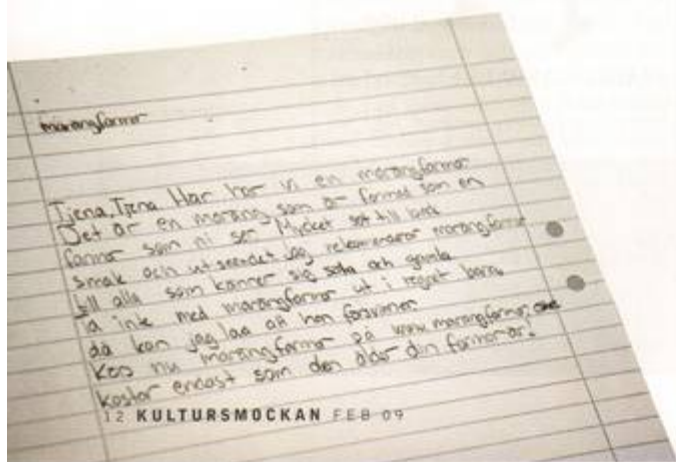 marangfarmor
Tjena, Tjena Här har vi en marangfarmor
Det är en marang som är formad som en
farmor som ni ser Mycket söt till både
smak och utseendet Jag rekomenderar marangfarmor
till alla som känner sig söta och gamla
Ta inte med marangfarmor ut i regnet barn,
då kan jag lova att hon försvinner.
Köp nu marangfarmor på www.marangfarmor.
kostar endast som den ålder din farmor är!
12 KULTURSMOCKAN FEB 09